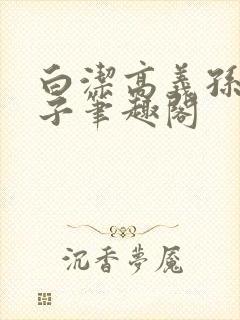 白潔高義孫
子筆趣閣
沉香夢魘